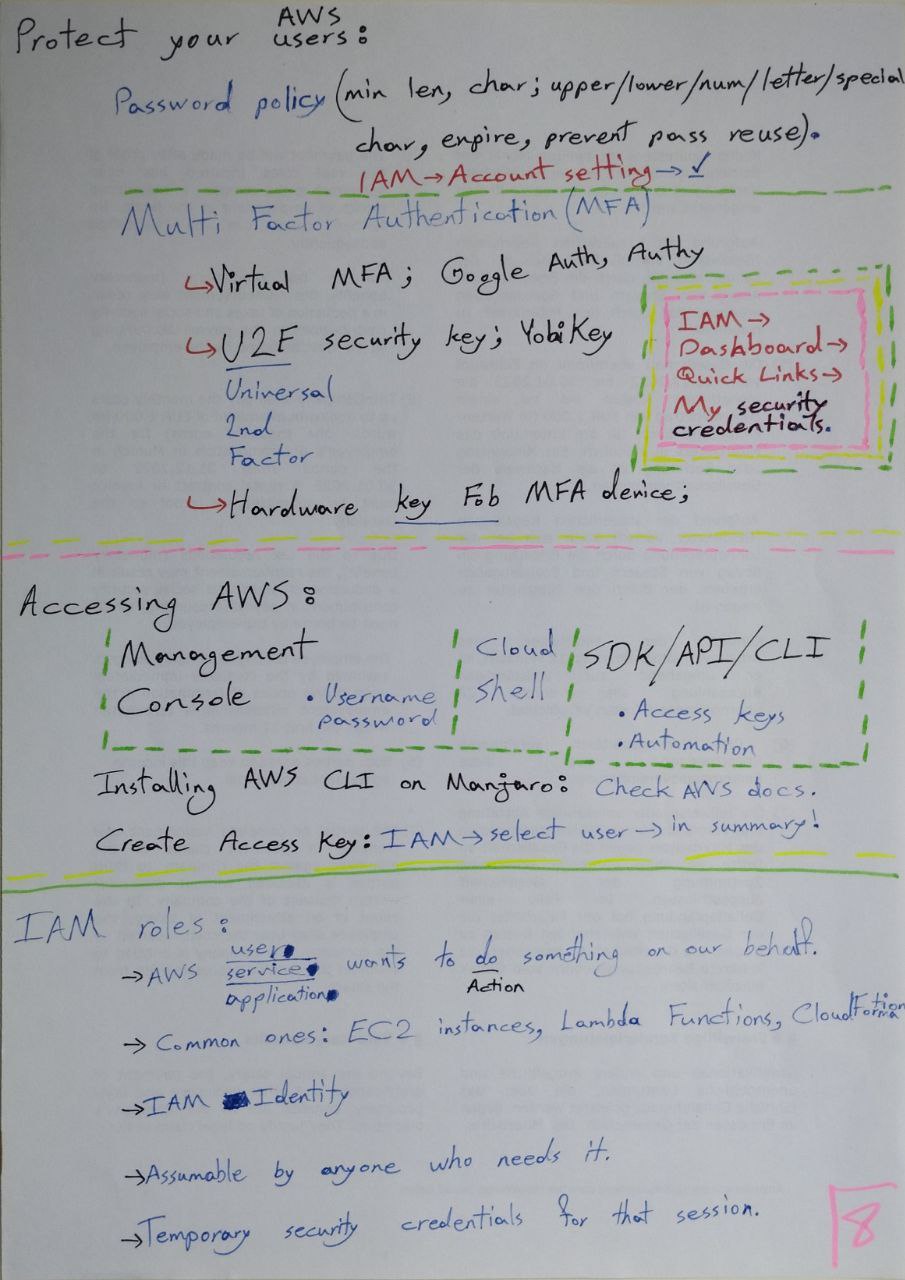 Protect your AWS users:
Password policy (min len, char; upper/lower/num/letter/special
char, enpire, prevent pass reuse).
IAM→Account setting→✓
Multi Factor Authentication (MFA)
↳Virtual MFA; Google Auth, Authy
↳U2F security key; YobiKey
Universal
2nd
Factor
IAM→
Dashboard→
Quick Links→
My security
credentials.
↳Hardware key Fob MFA device;
Accessing AWS:
Management
Console
• Username
password
Cloud
Shell
SDK/API/CLI
• Access keys
• Automation
Installing AWS CLI on Manjaro: Check AWS docs.
Create Access key: IAM→select user→in summary!
IAM roles:
→AWS user
service
application
wants to do something on our behalf.
Action
→ Common ones: EC2 instances, Lambda Functions, CloudFormation
→IAM Identity
→Assumable by anyone who needs it.
→Temporary security credentials for that session.
8